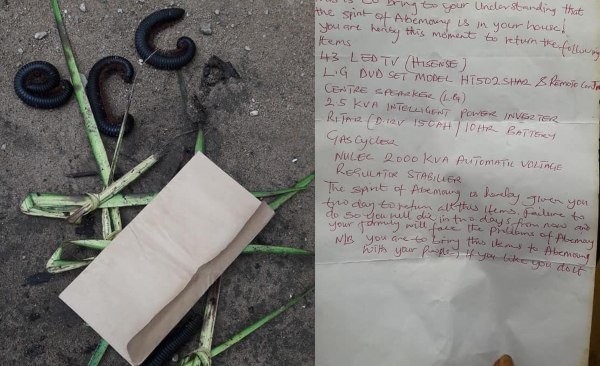 This is to bring to your understanding that
the spirit of Abemowy is in your house!
you are hereby this moment to return the following
Items
43 LED TV (HISENSE)
L.G DVD SET MODEL HT502SHAR & Remote Control
CENTRE SPEARKER (L.G)
2.5 KVA INTELLIGENT POWER INVERTER
RITAR (D.12V 150AH) 10HR BATTERY
GAS Cycler
NULEC 2000 KVA AUTOMATIC VOLTAGE
REGULATOR STABILIER
The spirit of Abemowy is hereby given you
two day to return all this items, failure to
do so you will die in two days from now and
your family will face the problems of Abemowy
N/B you are to bring this items to Abemowy
with your people, if you like you do it